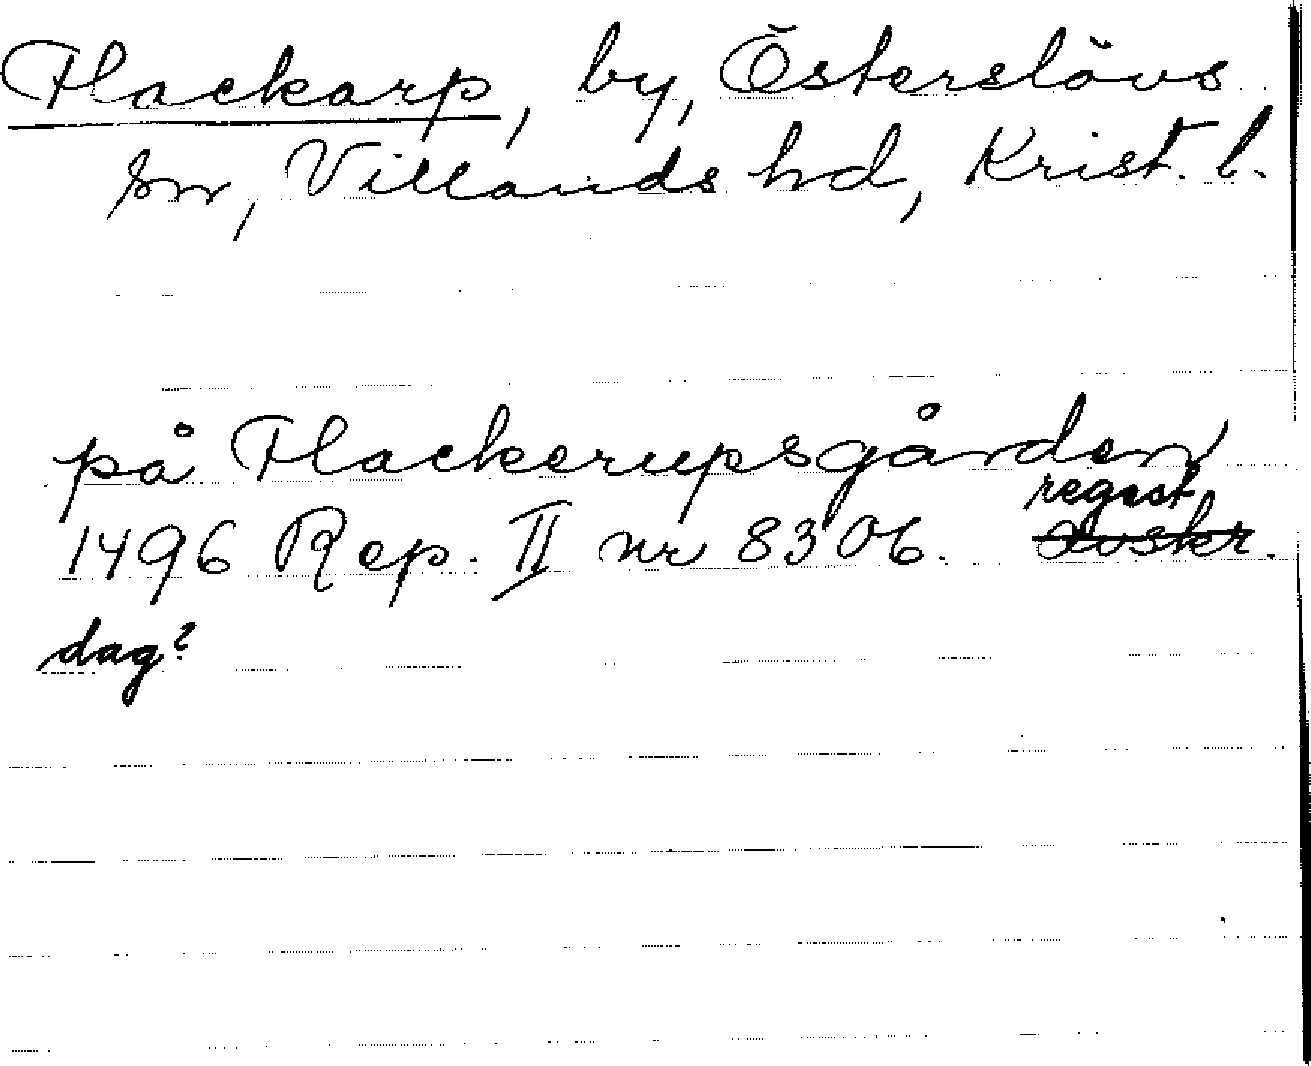 Flackarp, by, Österslövs
sn, Villands hd, Krist. l.
på Flackerupsgården
regest
1496 Rep. II nr 8306. avskr.
dag?